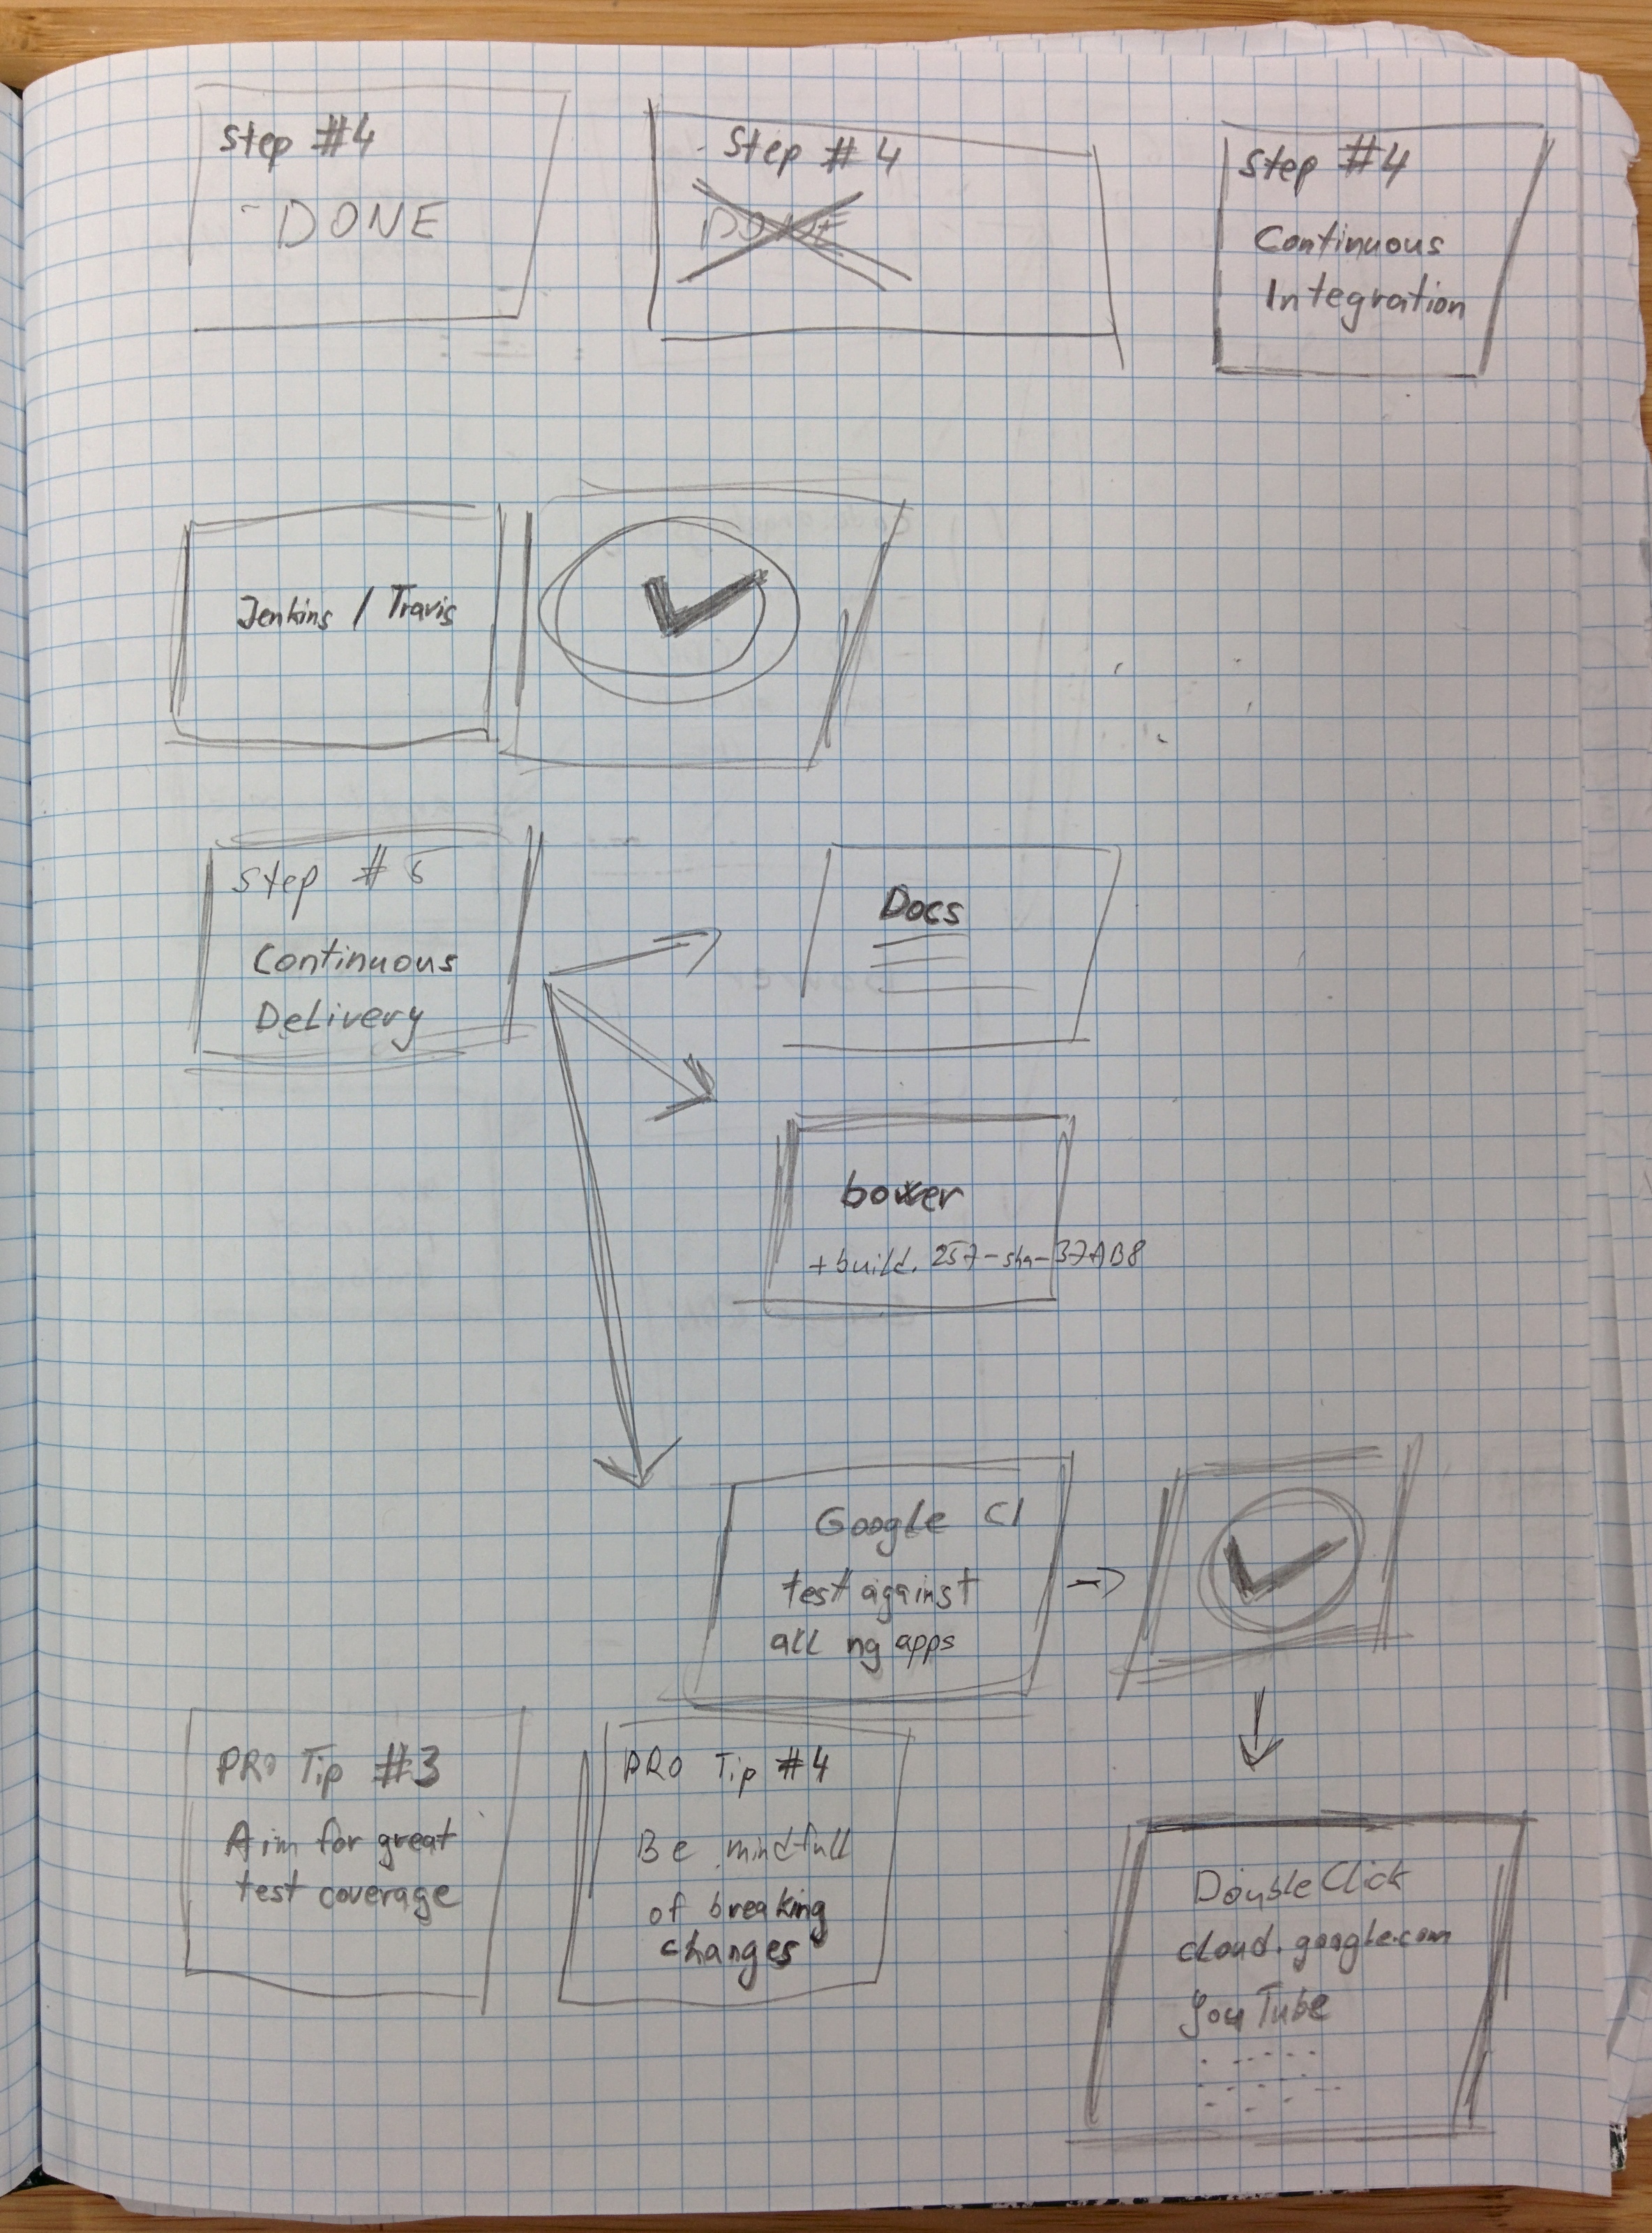 Step #4
- DONE
- Step #4
DONE
Step #4
Continuous
Integration
Jenkins / Travis
Step #5
Continuous
Delivery
Docs
bower
+build.257-sha-37AB8
Google CI
test against
all ng apps
PRO Tip #3
Aim for great
test coverage
PRO Tip #4
Be mindfull
of breaking
changes
DoubleClick
cloud.google.com
YouTube